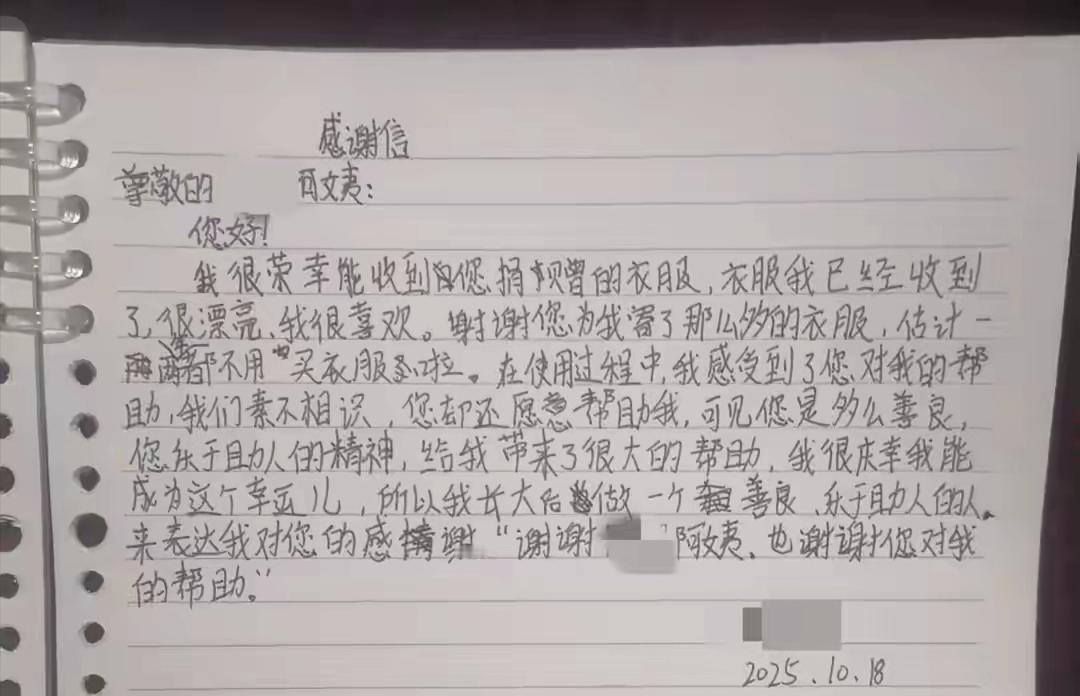 感谢信
尊敬的 阿姨：
您好！
我很荣幸能收到您捐赠的衣服，衣服我已经收到
了，很漂亮，我很喜欢。谢谢您为我寄了那么多的衣服，估计一
两年都不用买衣服啦。在使用过程中，我感受到了您对我的帮
助，我们素不相识，您却还愿意帮助我，可见您是多么善良，
您乐于助人的精神，给我带来了很大的帮助，我很庆幸我能
成为这个幸运儿，所以我长大后做一个善良、乐于助人的人。
来表达我对您的感谢“谢谢 阿姨，也谢谢您对我
的帮助。”
2025.10.18